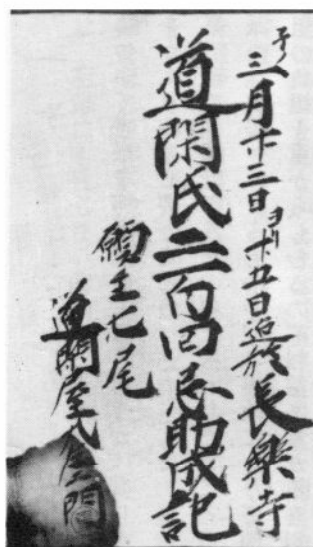 子ノ三月廿三日ヨリ廿五日迄於長樂寺
道閑氏二百回忌助成記
願主七尾
道閑屋